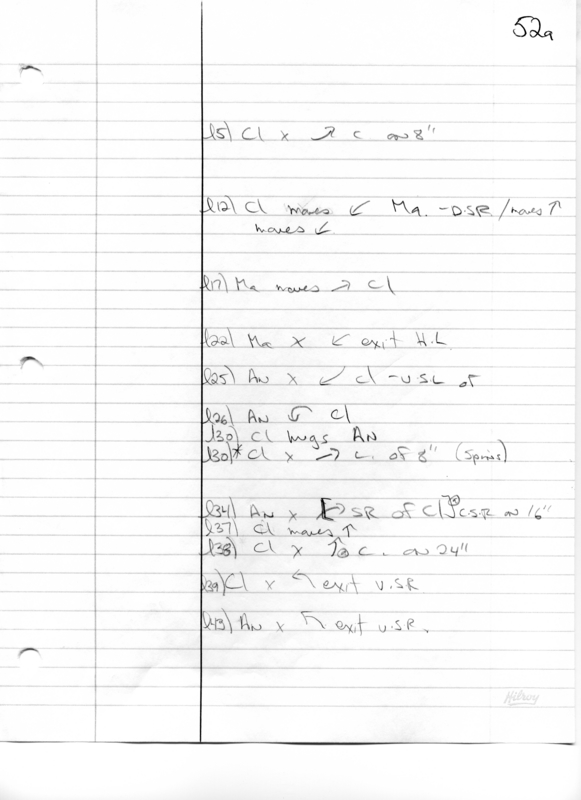 52a
l5) Cl x ↗ c on 8"
l12) Cl moves ↙ Ma. - D.S.R / moves ↑
moves ↙
l17) Ma moves → Cl
l22) Ma x ↙ exit H.L
l25) AN x ↙ Cl - U.S.L of
l26) AN Cl
l30) Cl hugs AN
l30)* Cl x → c. of 8" (spins)
l34) AN x [→ SR of Cl] C.S.R on 16"
l37) Cl moves ↑
l38) Cl x ↑ C. on 24"
l39) Cl x ↖ exit U.SR
l43) AN x ↖ exit U.SR.
Hilroy